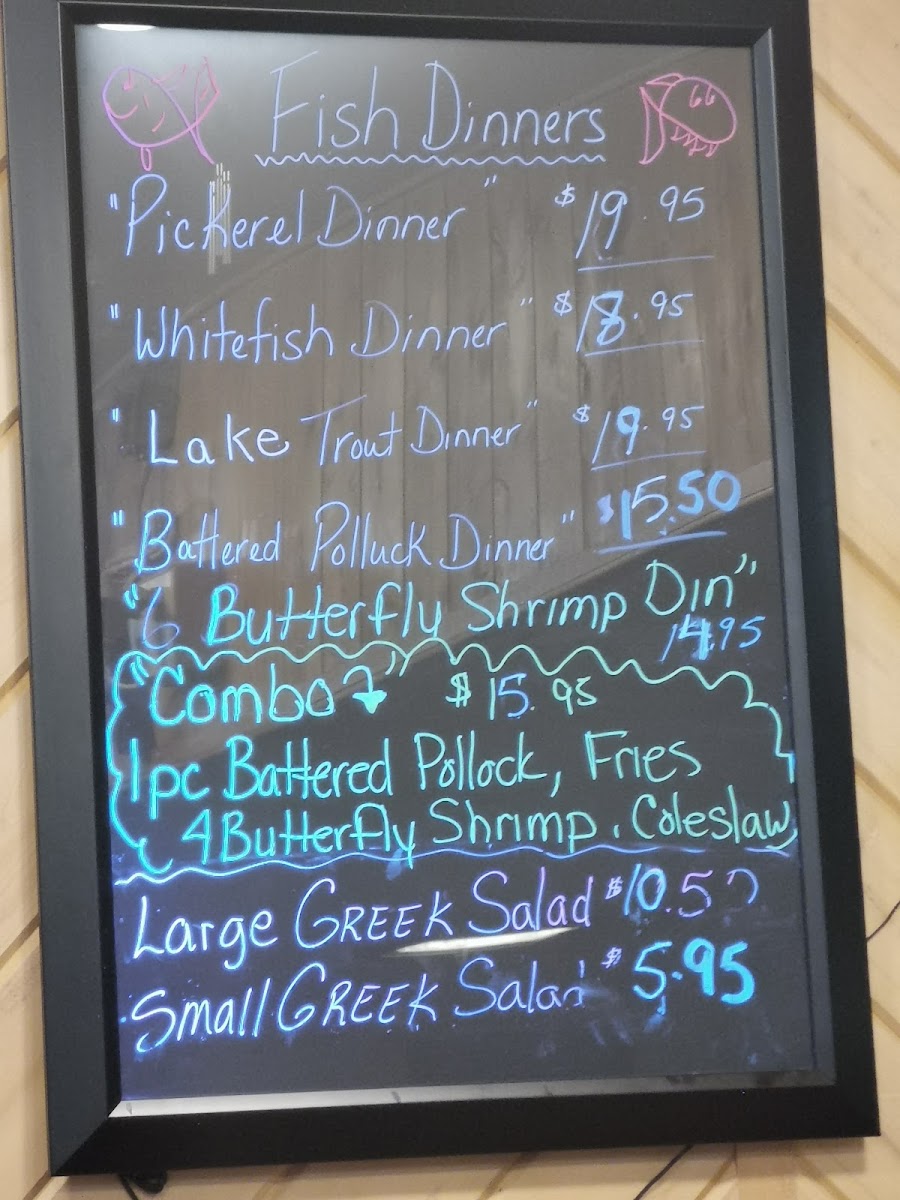 Fish Dinners
"Pickerel Dinner" $19.95
"Whitefish Dinner" $18.95
"Lake Trout Dinner" $19.95
"Battered Polluck Dinner" $15.50
"6 Butterfly Shrimp Din"
14.95
"Combo" $15.95
1pc Battered Pollock, Fries
4 Butterfly Shrimp. Coleslaw
Large GREEK Salad $10.50
Small GREEK Salad $5.95